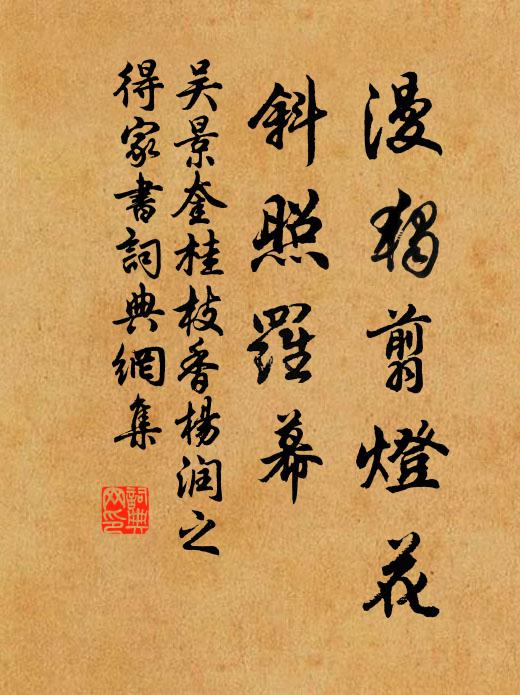 漫獨翦燈花
斜照羅幕
吴景奎桂枝香楊润之
得家書詞典網集
詞典
网印